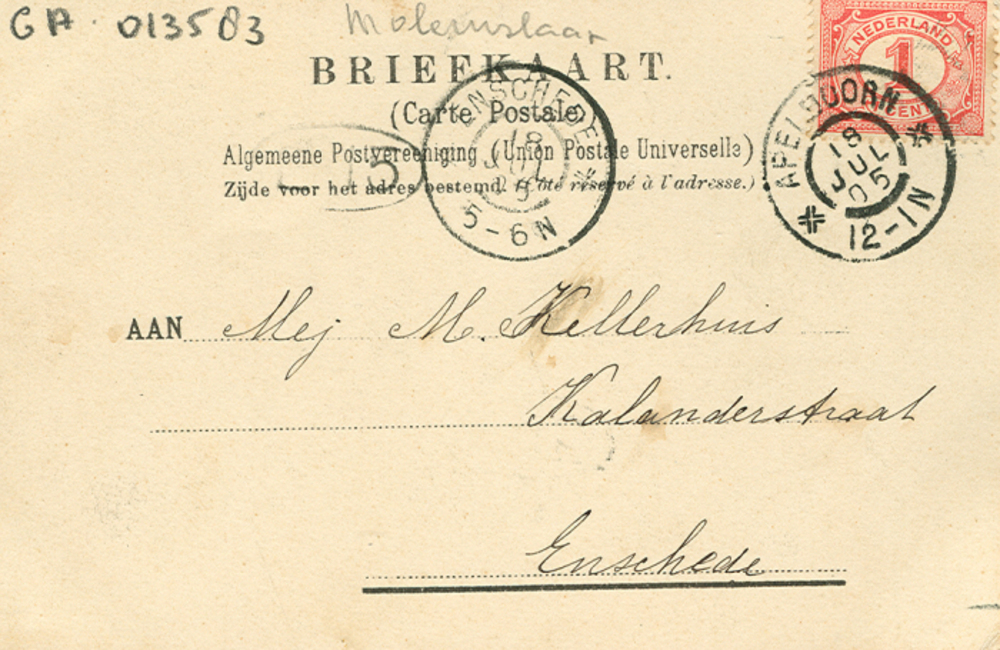 GA 013583
Molenslaan
NEDERLAND
1
CENT
BRIEFKAART.
(Carte Postale)
Algemeene Postvereeniging (Union Postale Universelle)
Zijde voor het adres bestemd. (Côté réservé à l'adresse.)
ENSCHEDE
18
JUL
5
5-6N
APELDOORN
18
JUL
05
12-1N
AAN Mej M. Kellerhuis
Kalanderstraat
Enschede